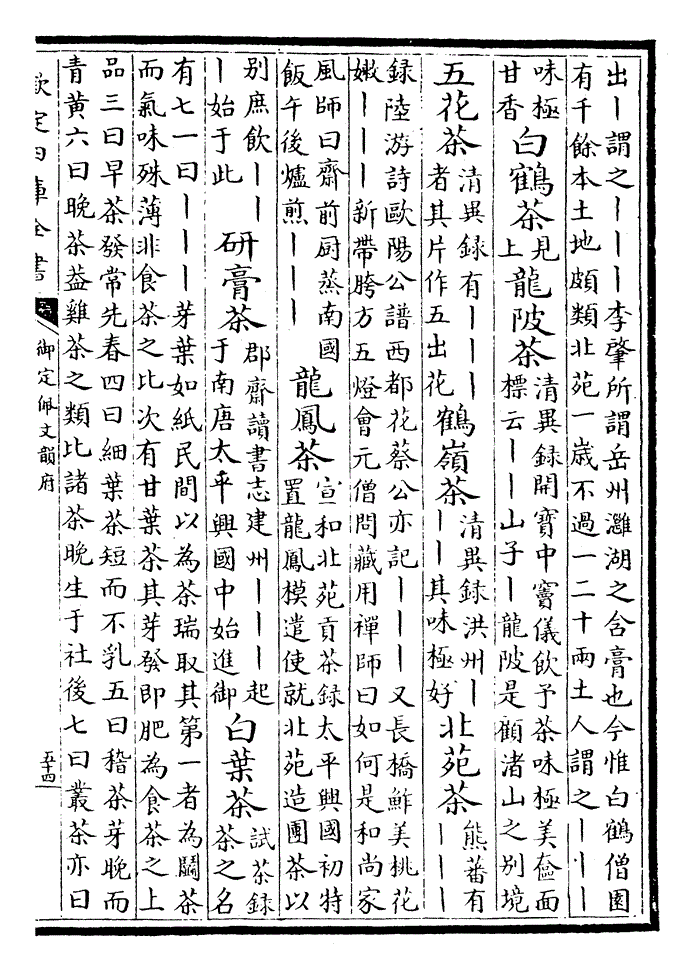 出｜謂之｜｜｜李肇所謂岳州灉湖之含膏也今惟白鶴僧園
有千餘本土地頗類北苑一歳不過一二十兩土人謂之｜｜｜
味極甘香白鶴茶見上龍陂茶清異録開寶中竇儀飲予茶味極美奩面標云｜｜山子｜龍陂是顧渚山之别境
五花茶清異録有｜｜｜者其片作五出花鶴嶺茶清異録洪州｜｜｜其味極好北苑茶熊蕃有｜｜｜
録陸游詩歐陽公譜西都花蔡公亦記｜｜｜又長橋鮓美桃花
嫩｜｜｜新帶胯方五燈會元僧問藏用禪師曰如何是和尚家
風師曰齋前厨蒸南國飯午後爐煎｜｜｜龍鳳茶宣和北苑貢茶録太平興國初特置龍鳳模遣使就北苑造團茶以
别庶飲｜｜｜始于此研膏茶郡齋讀書志建州｜｜｜起于南唐太平興國中始進御白葉茶試茶録茶之名
有七一曰｜｜｜芽葉如紙民間以為茶瑞取其第一者為鬭茶
而氣味殊薄非食茶之比次有甘葉茶其芽發即肥為食茶之上
品三曰早茶發常先春四曰細葉茶短而不乳五曰稽茶芽晚而
青黄六曰晚茶葢雞茶之類比諸茶晚生于社後七曰叢茶亦曰
欽定四庫全書
御定佩文韻府
五十四